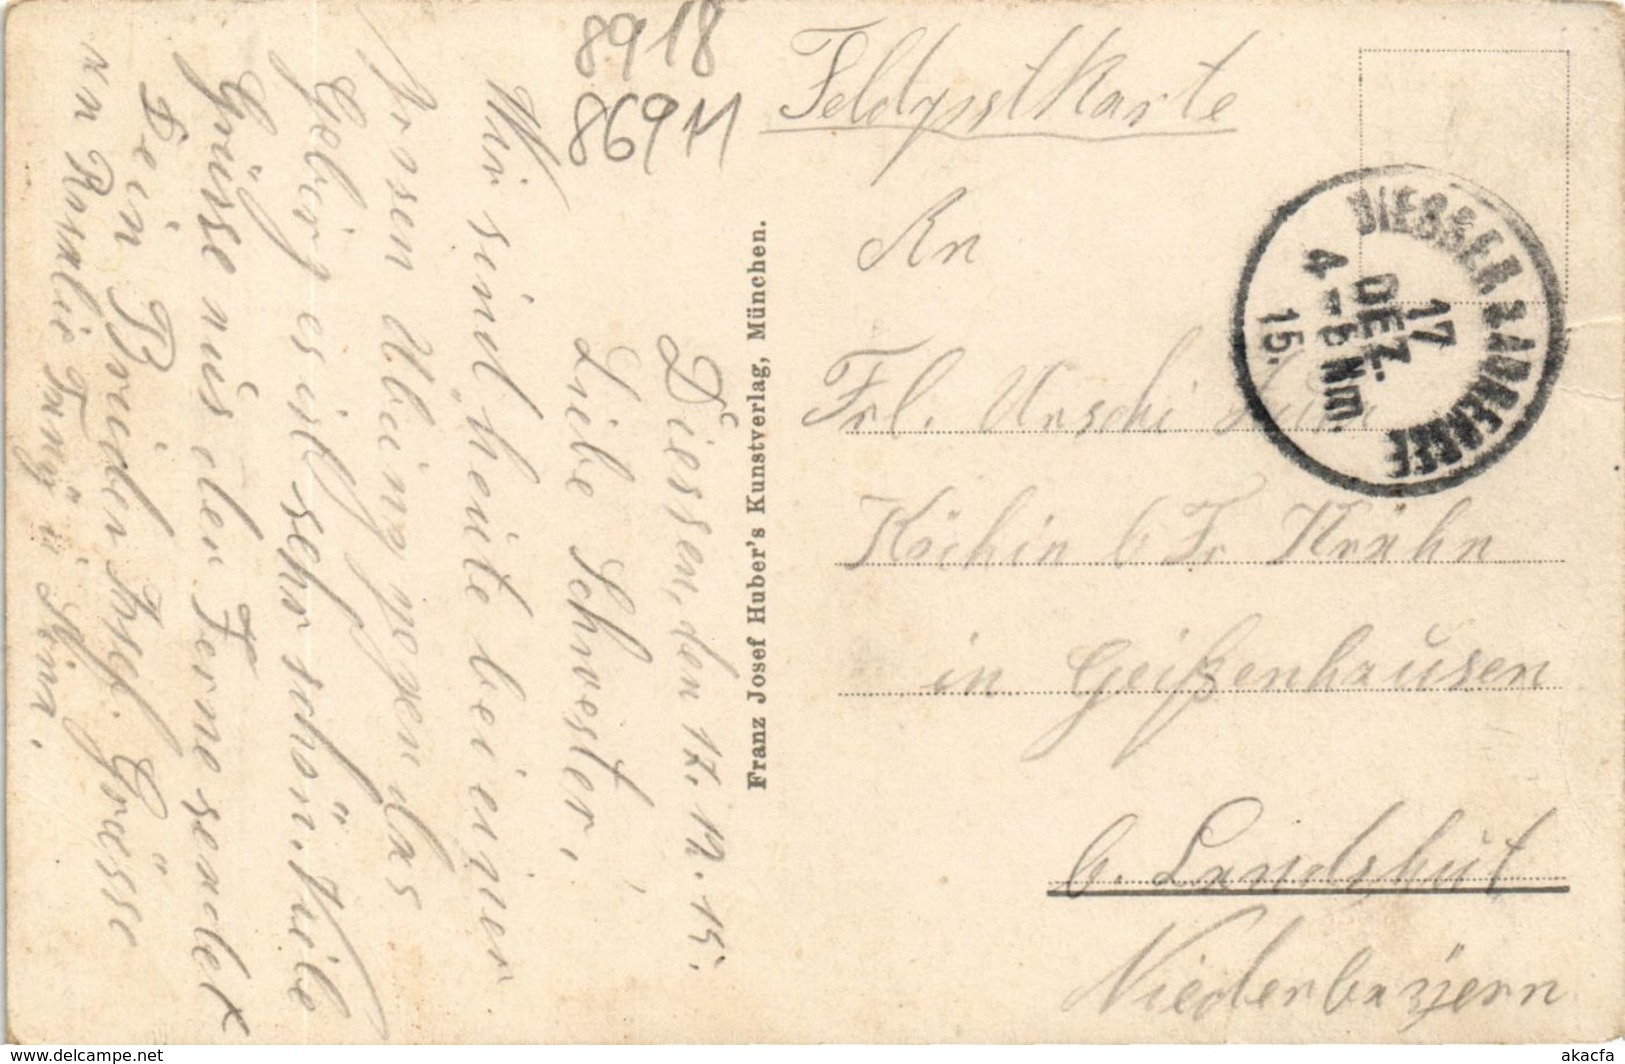 8918
86911
Feldpostkarte
An
Frl. Urschi
Köchin b Fr Krahn
in Geißenhausen
b. Landshut
Niederbayern
DIESSEN AMMERSEE
17
DEZ.
4-5 Nm.
15.
Franz Josef Huber's Kunstverlag, München.
Diessen, den 17. 12. 15.
Liebe Schwester,
Wir sind heute bei einer
Übung gegen das
Gebirg es ist sehr schön. Viele
Grüsse aus der Ferne sendet
Dein Bruder Josef. Grüsse
an Rosalie Fanÿ u
www.delcampe.net
akacfa